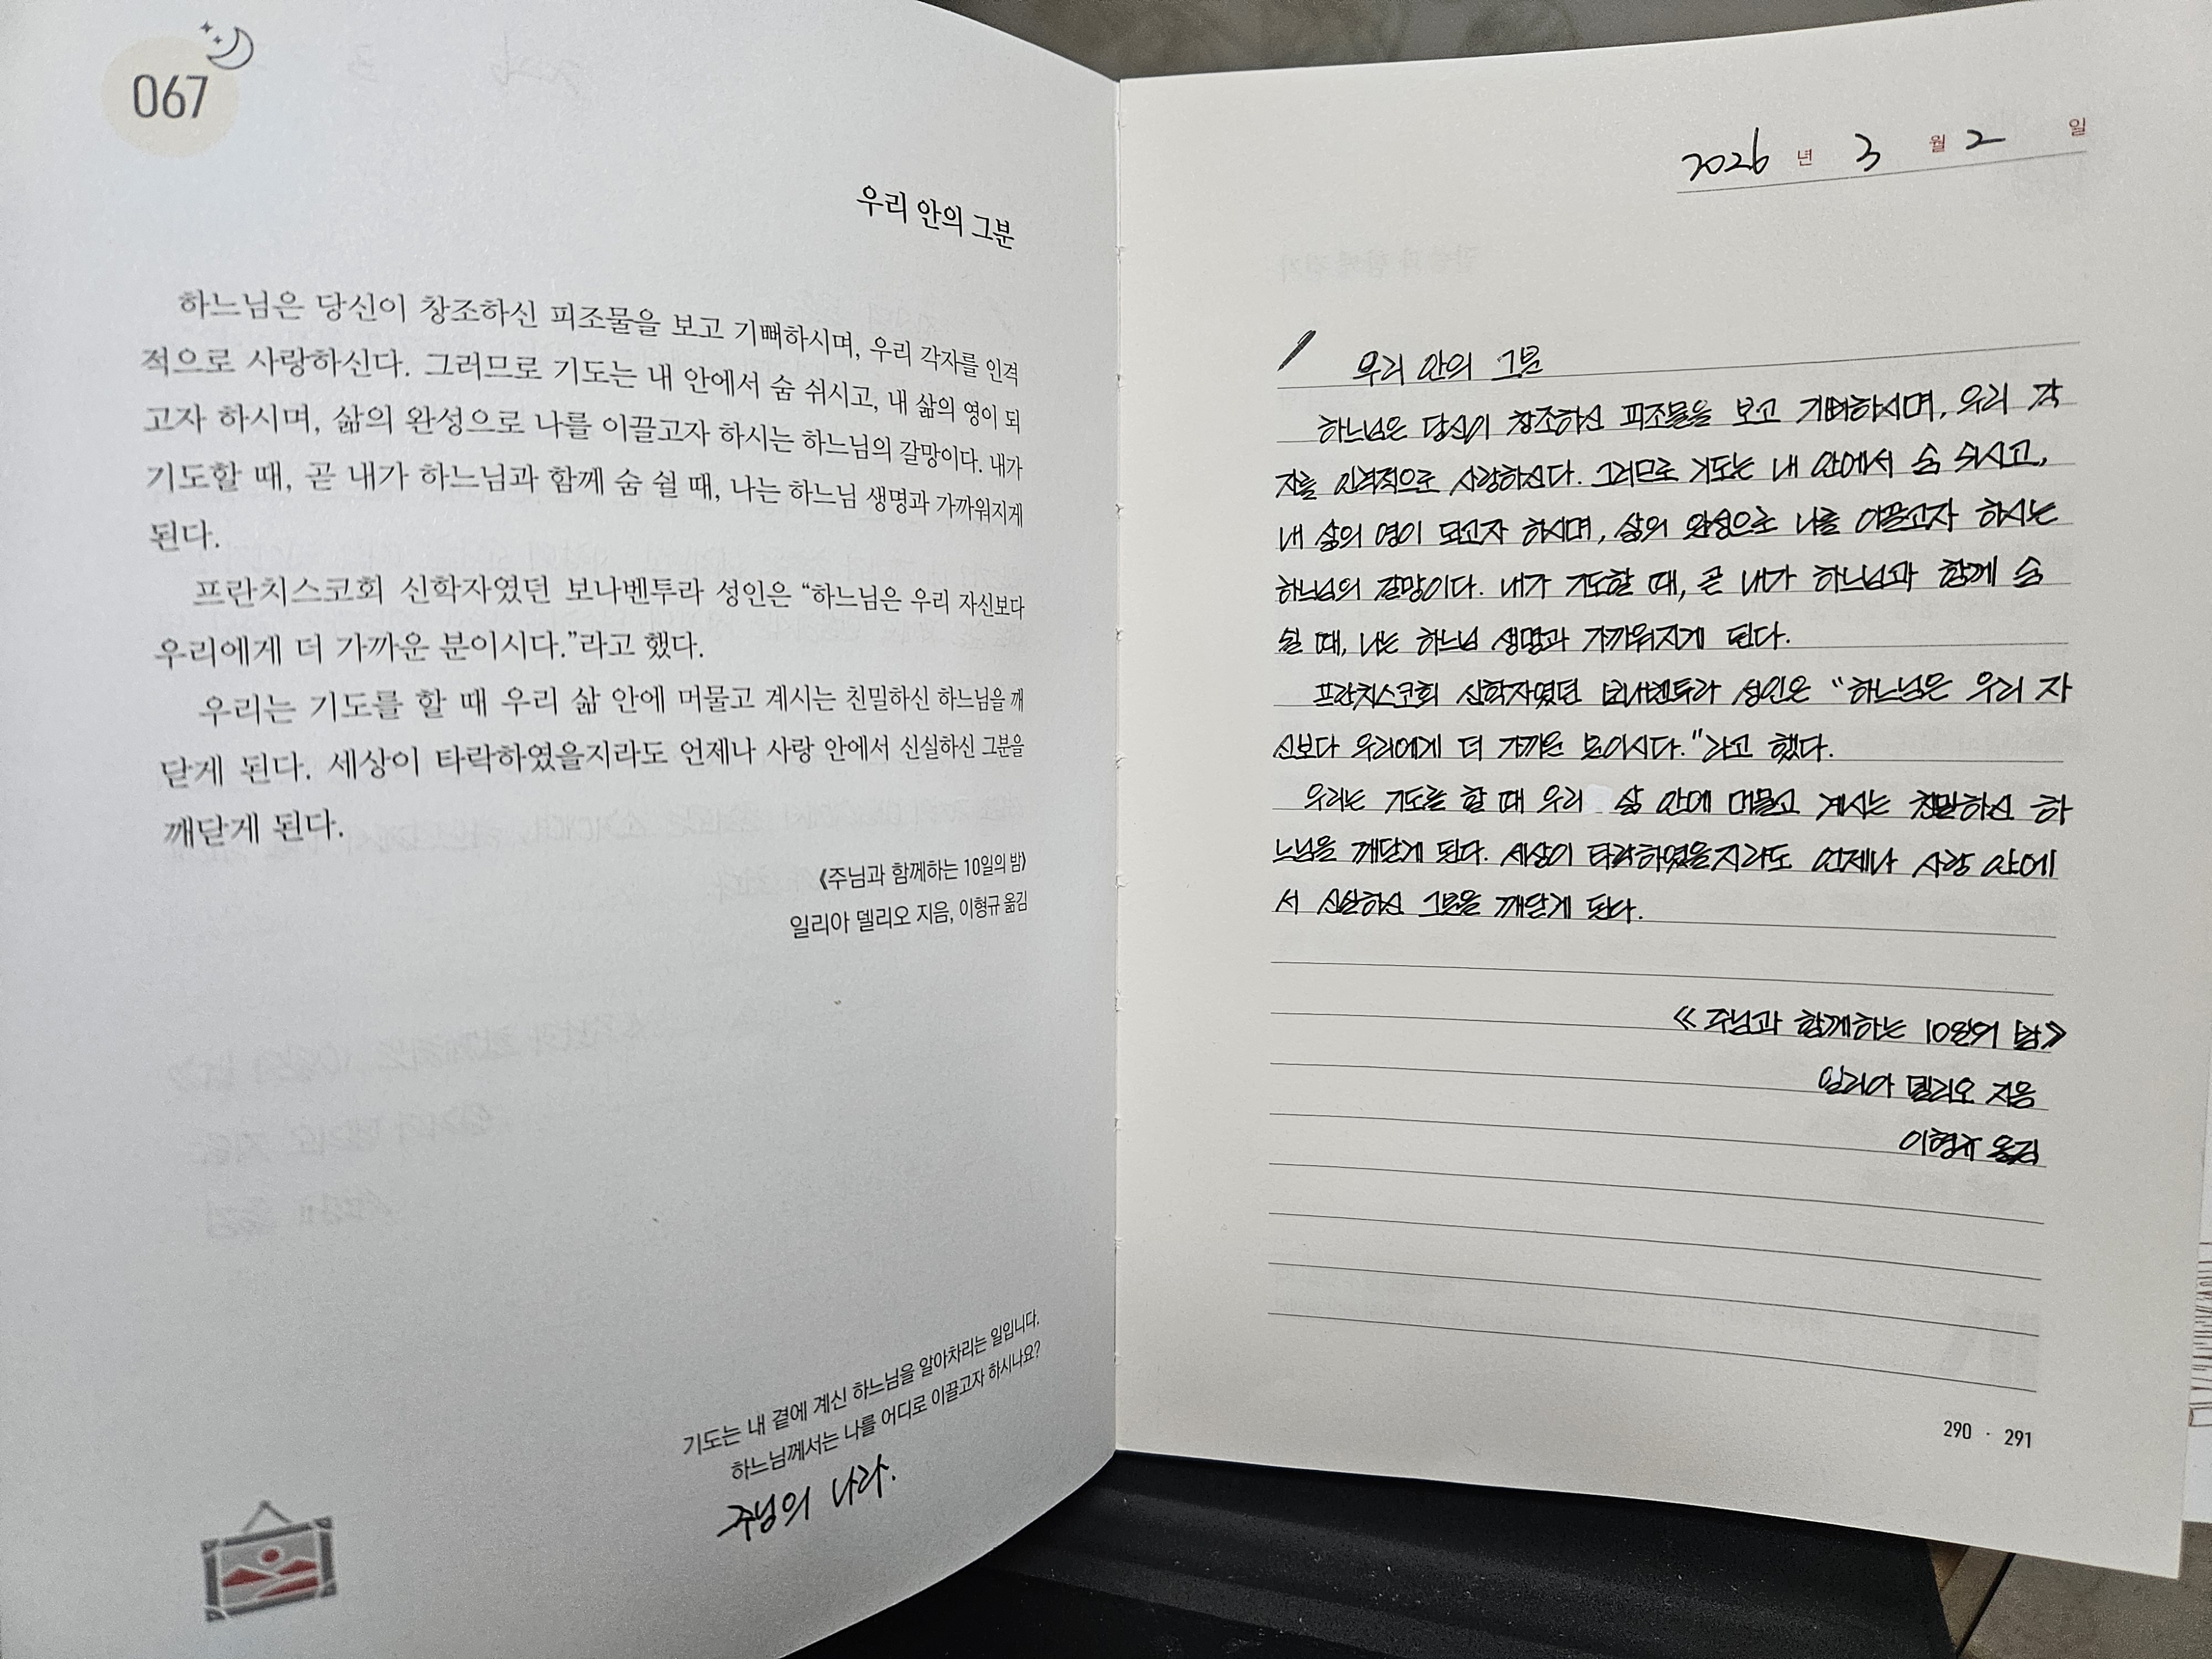 067
우리 안의 그분
하느님은 당신이 창조하신 피조물을 보고 기뻐하시며, 우리 각자를 인격
적으로 사랑하신다. 그러므로 기도는 내 안에서 숨 쉬시고, 내 삶의 영이 되
고자 하시며, 삶의 완성으로 나를 이끌고자 하시는 하느님의 갈망이다. 내가
기도할 때, 곧 내가 하느님과 함께 숨 쉴 때, 나는 하느님 생명과 가까워지게
된다.
프란치스코회 신학자였던 보나벤투라 성인은 “하느님은 우리 자신보다
우리에게 더 가까운 분이시다.”라고 했다.
우리는 기도를 할 때 우리 삶 안에 머물고 계시는 친밀하신 하느님을 깨
닫게 된다. 세상이 타락하였을지라도 언제나 사랑 안에서 신실하신 그분을
깨닫게 된다.
《주님과 함께하는 10일의 밤》
일리아 델리오 지음, 이형규 옮김
기도는 내 곁에 계신 하느님을 알아차리는 일입니다.
하느님께서는 나를 어디로 이끌고자 하시나요?
주님의 나라.
2026 년 3 월 2 일
우리 안의 그분
하느님은 당신이 창조하신 피조물을 보고 기뻐하시며, 우리 각
자를 인격적으로 사랑하신다. 그러므로 기도는 내 안에서 숨 쉬시고,
내 삶의 영이 되고자 하시며, 삶의 완성으로 나를 이끌고자 하시는
하느님의 갈망이다. 내가 기도할 때, 곧 내가 하느님과 함께 숨
쉴 때, 나는 하느님 생명과 가까워지게 된다.
프란치스코회 신학자였던 보나벤투라 성인은 “하느님은 우리 자
신보다 우리에게 더 가까운 분이시다.”라고 했다.
우리는 기도를 할 때 우리 삶 안에 머물고 계시는 친밀하신 하
느님을 깨닫게 된다. 세상이 타락하였을지라도 언제나 사랑 안에
서 신실하신 그분을 깨닫게 된다.
《주님과 함께하는 10일의 밤》
일리아 델리오 지음
이형규 옮김
290 · 291